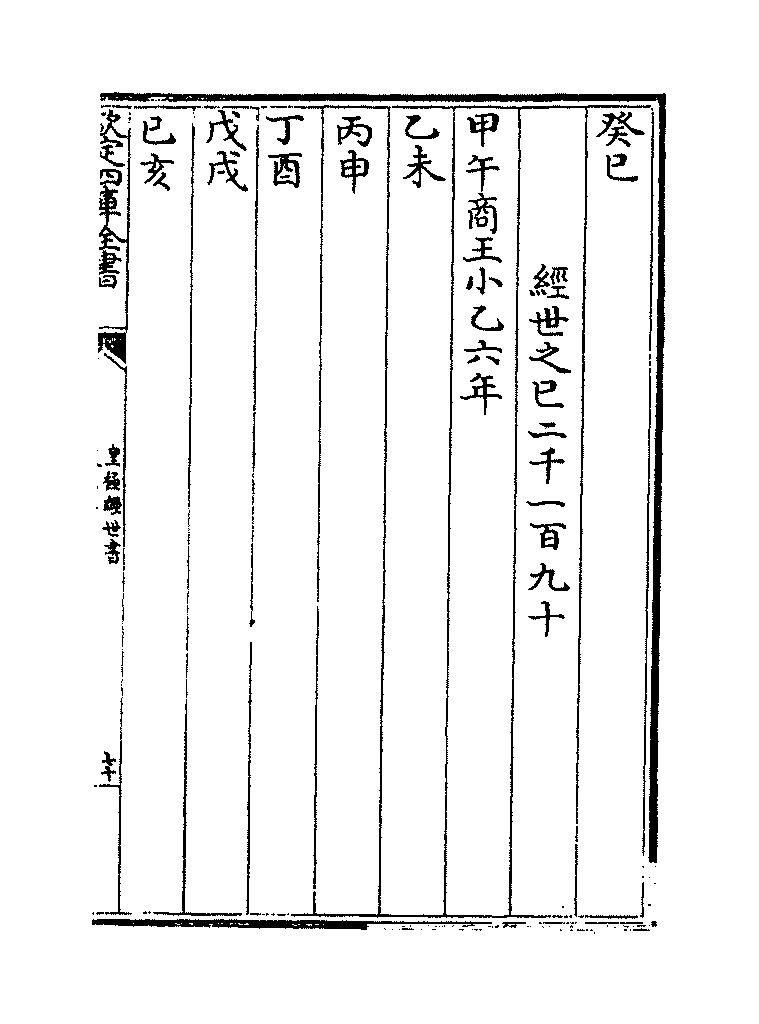 癸巳
經世之巳二千一百九十
甲午商王小乙六年
乙未
丙申
丁酉
戊戌
己亥
欽定四庫全書
皇極經世書
七十